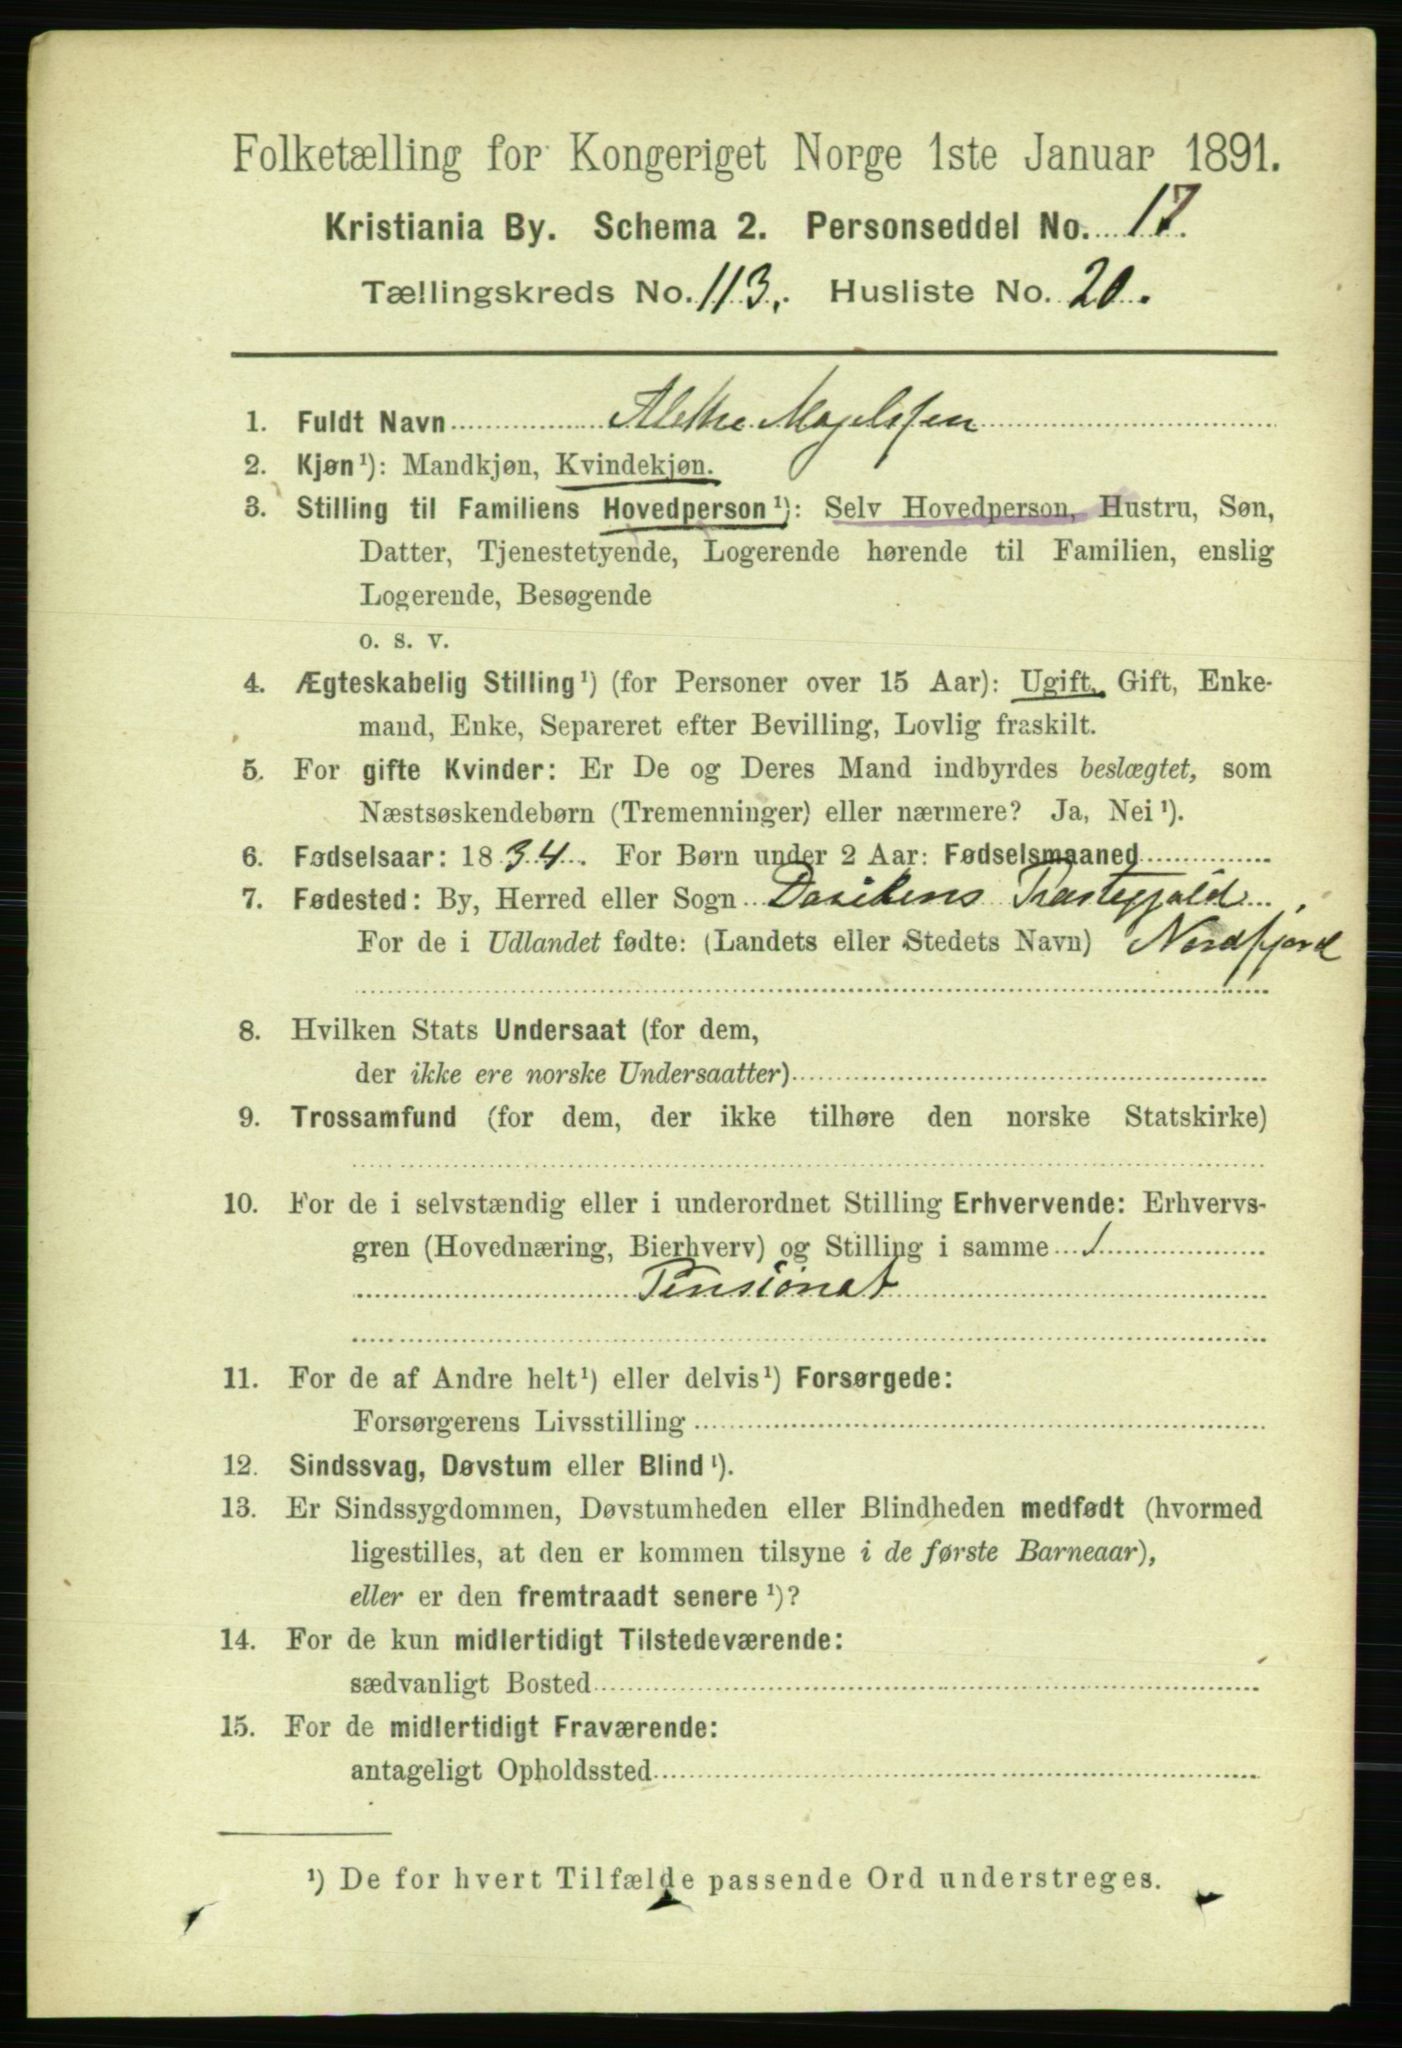 Folketælling for Kongeriget Norge 1ste Januar 1891.
Kristiania By. Schema 2. Personseddel No. 17.
Tællingskreds No. 113. Husliste No. 20.
1. Fuldt Navn Alethe Magelssen
2. Kjøn¹): Mandkjøn, Kvindekjøn.
3. Stilling til Familiens Hovedperson¹): Selv Hovedperson, Hustru, Søn,
Datter, Tjenestetyende, Logerende hørende til Familien, enslig
Logerende, Besøgende
o. s. v.
4. Ægteskabelig Stilling¹) (for Personer over 15 Aar): Ugift, Gift, Enke-
mand, Enke, Separeret efter Bevilling, Lovlig fraskilt.
5. For gifte Kvinder: Er De og Deres Mand indbyrdes beslægtet, som
Næstsøskendebørn (Tremenninger) eller nærmere? Ja, Nei¹).
6. Fødselsaar: 1834. For Børn under 2 Aar: Fødselsmaaned
7. Fødested: By, Herred eller Sogn Davikens Præstegjæld
For de i Udlandet fødte: (Landets eller Stedets Navn) Nordfjord
8. Hvilken Stats Undersaat (for dem,
der ikke ere norske Undersaatter)
9. Trossamfund (for dem, der ikke tilhøre den norske Statskirke)
10. For de i selvstændig eller i underordnet Stilling Erhvervende: Erhvervs-
gren (Hovednæring, Bierhverv) og Stilling i samme
Pensionat
11. For de af Andre helt¹) eller delvis¹) Forsørgede:
Forsørgerens Livsstilling
12. Sindssvag, Døvstum eller Blind¹).
13. Er Sindssygdommen, Døvstumheden eller Blindheden medfødt (hvormed
ligestilles, at den er kommen tilsyne i de første Barneaar),
eller er den fremtraadt senere¹)?
14. For de kun midlertidigt Tilstedeværende:
sædvanligt Bosted
15. For de midlertidigt Fraværende:
antageligt Opholdssted
¹) De for hvert Tilfælde passende Ord understreges.